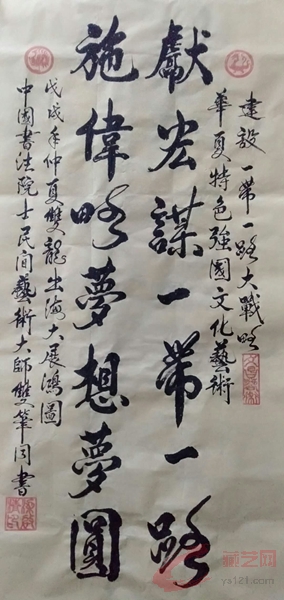 建設一帶一路大戰略
華夏特色強國文化藝術
獻宏謀一帶一路
施偉略夢想夢圓
戊戌年仲夏雙龍出海大展鴻圖
中國書法院士民間藝術大師雙筆同書
藏艺网
ys121.com